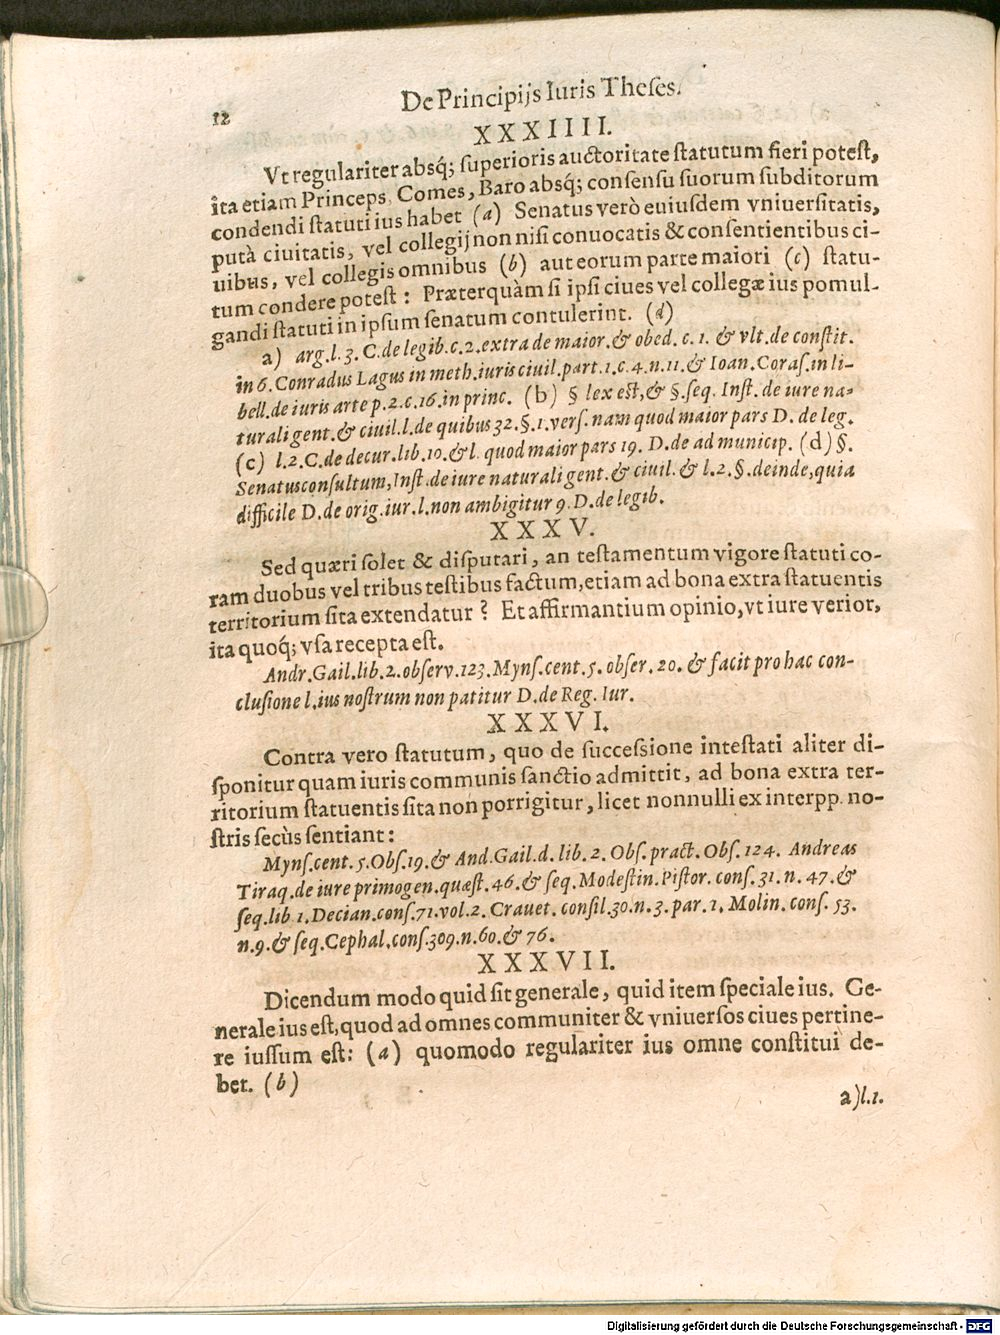 12 De Principijs Iuris Theses.
XXXIIII.
Vt regulariter absq́; superioris auctoritate statutum fieri potest,
ita etiam Princeps, Comes, Baro absq́; consensu suorum subditorum
condendi statuti ius habet (a) Senatus verò euiusdem vniuersitatis,
putà ciuitatis, vel collegij non nisi conuocatis & consentientibus ci-
uibus, vel collegis omnibus (b) aut eorum parte maiori (c) statu-
tum condere potest: Præterquàm si ipsi ciues vel collegæ ius pomul-
gandi statuti in ipsum senatum contulerint. (d)
a) arg. l. 3. C. de legib. c. 2. extra de maior. & obed. c. 1. & vlt. de constit.
in 6. Conradus Lagus in meth. iuris ciuil. part. 1. c. 4. n. 11. & Ioan. Coras. in li-
bell. de iuris arte p. 2. c. 16. in princ. (b) § lex est, & §. seq. Inst. de iure na-
turali gent. & ciuil. l. de quibus 32. §. 1. vers. nam quod maior pars D. de leg.
(c) l. 2. C. de decur. lib. 10. & l. quod maior pars 19. D. de ad municip. (d) §.
Senatusconsultum, Inst. de iure naturali gent. & ciuil. & l. 2. §. deinde, quia
difficile D. de orig. iur. l. non ambigitur 9. D. de legib.
XXXV.
Sed quæri solet & disputari, an testamentum vigore statuti co-
ram duobus vel tribus testibus factum, etiam ad bona extra statuentis
territorium sita extendatur? Et affirmantium opinio, vt iure verior,
ita quoq́; vsa recepta est.
Andr. Gail. lib. 2. observ. 123. Myns. cent. 5. obser. 20. & facit pro hac con-
clusione l. ius nostrum non patitur D. de Reg. Iur.
XXXVI.
Contra vero statutum, quo de successione intestati aliter di-
sponitur quam iuris communis sanctio admittit, ad bona extra ter-
ritorium statuentis sita non porrigitur, licet nonnulli ex interpp. no-
stris secùs sentiant:
Myns. cent. 5. Obs. 19. & And. Gail. d. lib. 2. Obs. pract. Obs. 124. Andreas
Tiraq. de iure primogen. quæst. 46. & seq. Modestin. Pistor. cons. 31. n. 47. &
seq. lib 1. Decian. cons. 71. vol. 2. Crauet. consil. 30. n. 3. par. 1. Molin. cons. 53.
n. 9. & seq. Cephal. cons. 309. n. 60. & 76.
XXXVII.
Dicendum modo quid sit generale, quid item speciale ius. Ge-
nerale ius est, quod ad omnes communiter & vniuersos ciues pertine-
re iussum est: (a) quomodo regulariter ius omne constitui de-
bet. (b)
a) l. 1.
Digitalisierung gefördert durch die Deutsche Forschungsgemeinschaft - DFG